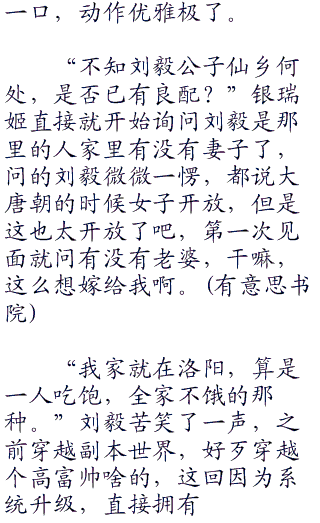 一口，动作优雅极了。
“不知刘毅公子仙乡何
处，是否已有良配？”银瑞
姬直接就开始询问刘毅是那
里的人家里有没有妻子了，
问的刘毅微微一愣，都说大
唐朝的时候女子开放，但是
这也太开放了吧，第一次见
面就问有没有老婆，干嘛，
这么想嫁给我啊。(有意思书
院)
“我家就在洛阳，算是
一人吃饱，全家不饿的那
种。”刘毅苦笑了一声，之
前穿越副本世界，好歹穿越
个高富帅啥的，这回因为系
统升级，直接拥有